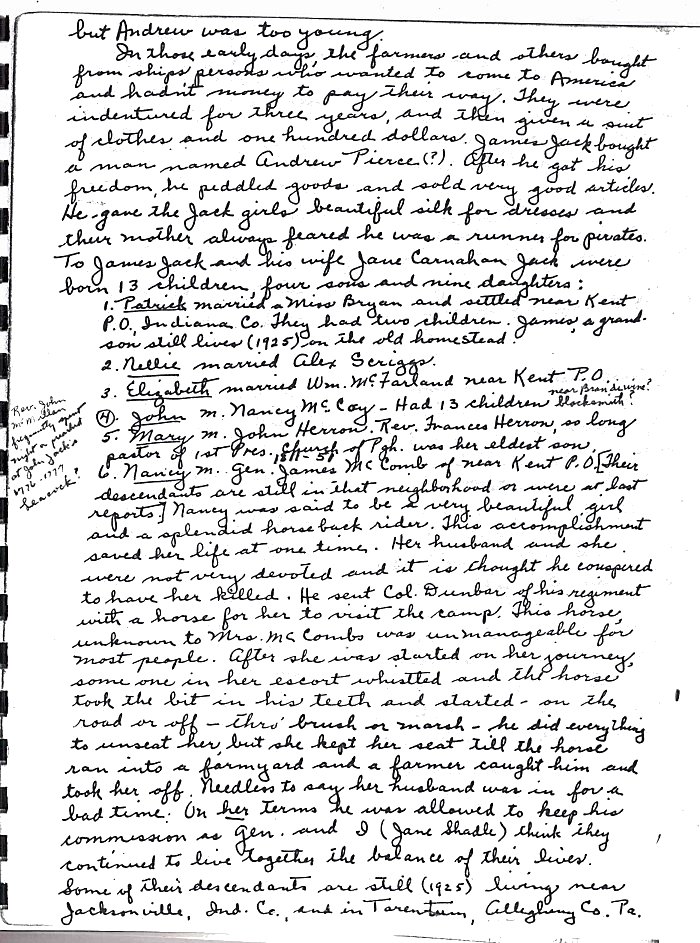 but Andrew was too young.
In those early days, the farmers and others bought
from ships persons who wanted to come to America
and hadn't money to pay their way. They were
indentured for three years, and then given a suit
of clothes and one hundred dollars. James Jack bought
a man named Andrew Pierce (?). After he got his
freedom, he peddled goods and sold very good articles.
He gave the Jack girls beautiful silk for dresses and
their mother always feared he was a runner for pirates.
To James Jack and his wife Jane Carnahan Jack were
born 13 children, four sons and nine daughters:
1. Patrick married a Miss Bryan and settled near Kent
P.O., Indiana Co. They had two children. James a grand-
son still lives (1925) on the old homestead.
2. Nellie married Alex Scriggs.
3. Elizabeth married Wm. McFarland near Kent P.O.
near Brandywine?
4. John m. Nancy McCoy - Had 13 children blacksmith?
Rev. John
McMillan
frequently spent
night & preached
at John Jack's
1776-1777
Peacock?
5. Mary m. John Herron. Rev. Frances Herron, so long
pastor of 1st Pres. Church of Pgh. was her eldest son
6. Nancy m. Gen. James McComb of near Kent P.O. [Their
descendants are still in that neighborhood or were at last
reports.] Nancy was said to be a very beautiful girl
and a splendid horseback rider. This accomplishment
saved her life at one time. Her husband and she
were not very devoted and it is thought he conspered
to have her killed. He sent Col. Dunbar of his regiment
with a horse for her to visit the camp. This horse,
unknown to Mrs. McCombs was unmanageable for
most people. After she was started on her journey,
some one in her escort whistled and the horse
took the bit in his teeth and started - on the
road or off - thro' brush or marsh - he did everything
to unseat her, but she kept her seat till the horse
ran into a farmyard and a farmer caught him and
took her off. Needless to say her husband was in for a
bad time. On her terms he was allowed to keep his
commission as Gen. and I (Jane Shadle) think they
continued to live together the balance of their lives.
Some of their descendants are still (1925) living near
Jacksonville, Ind. Co., and in Tarentum, Allegheny Co. Pa.